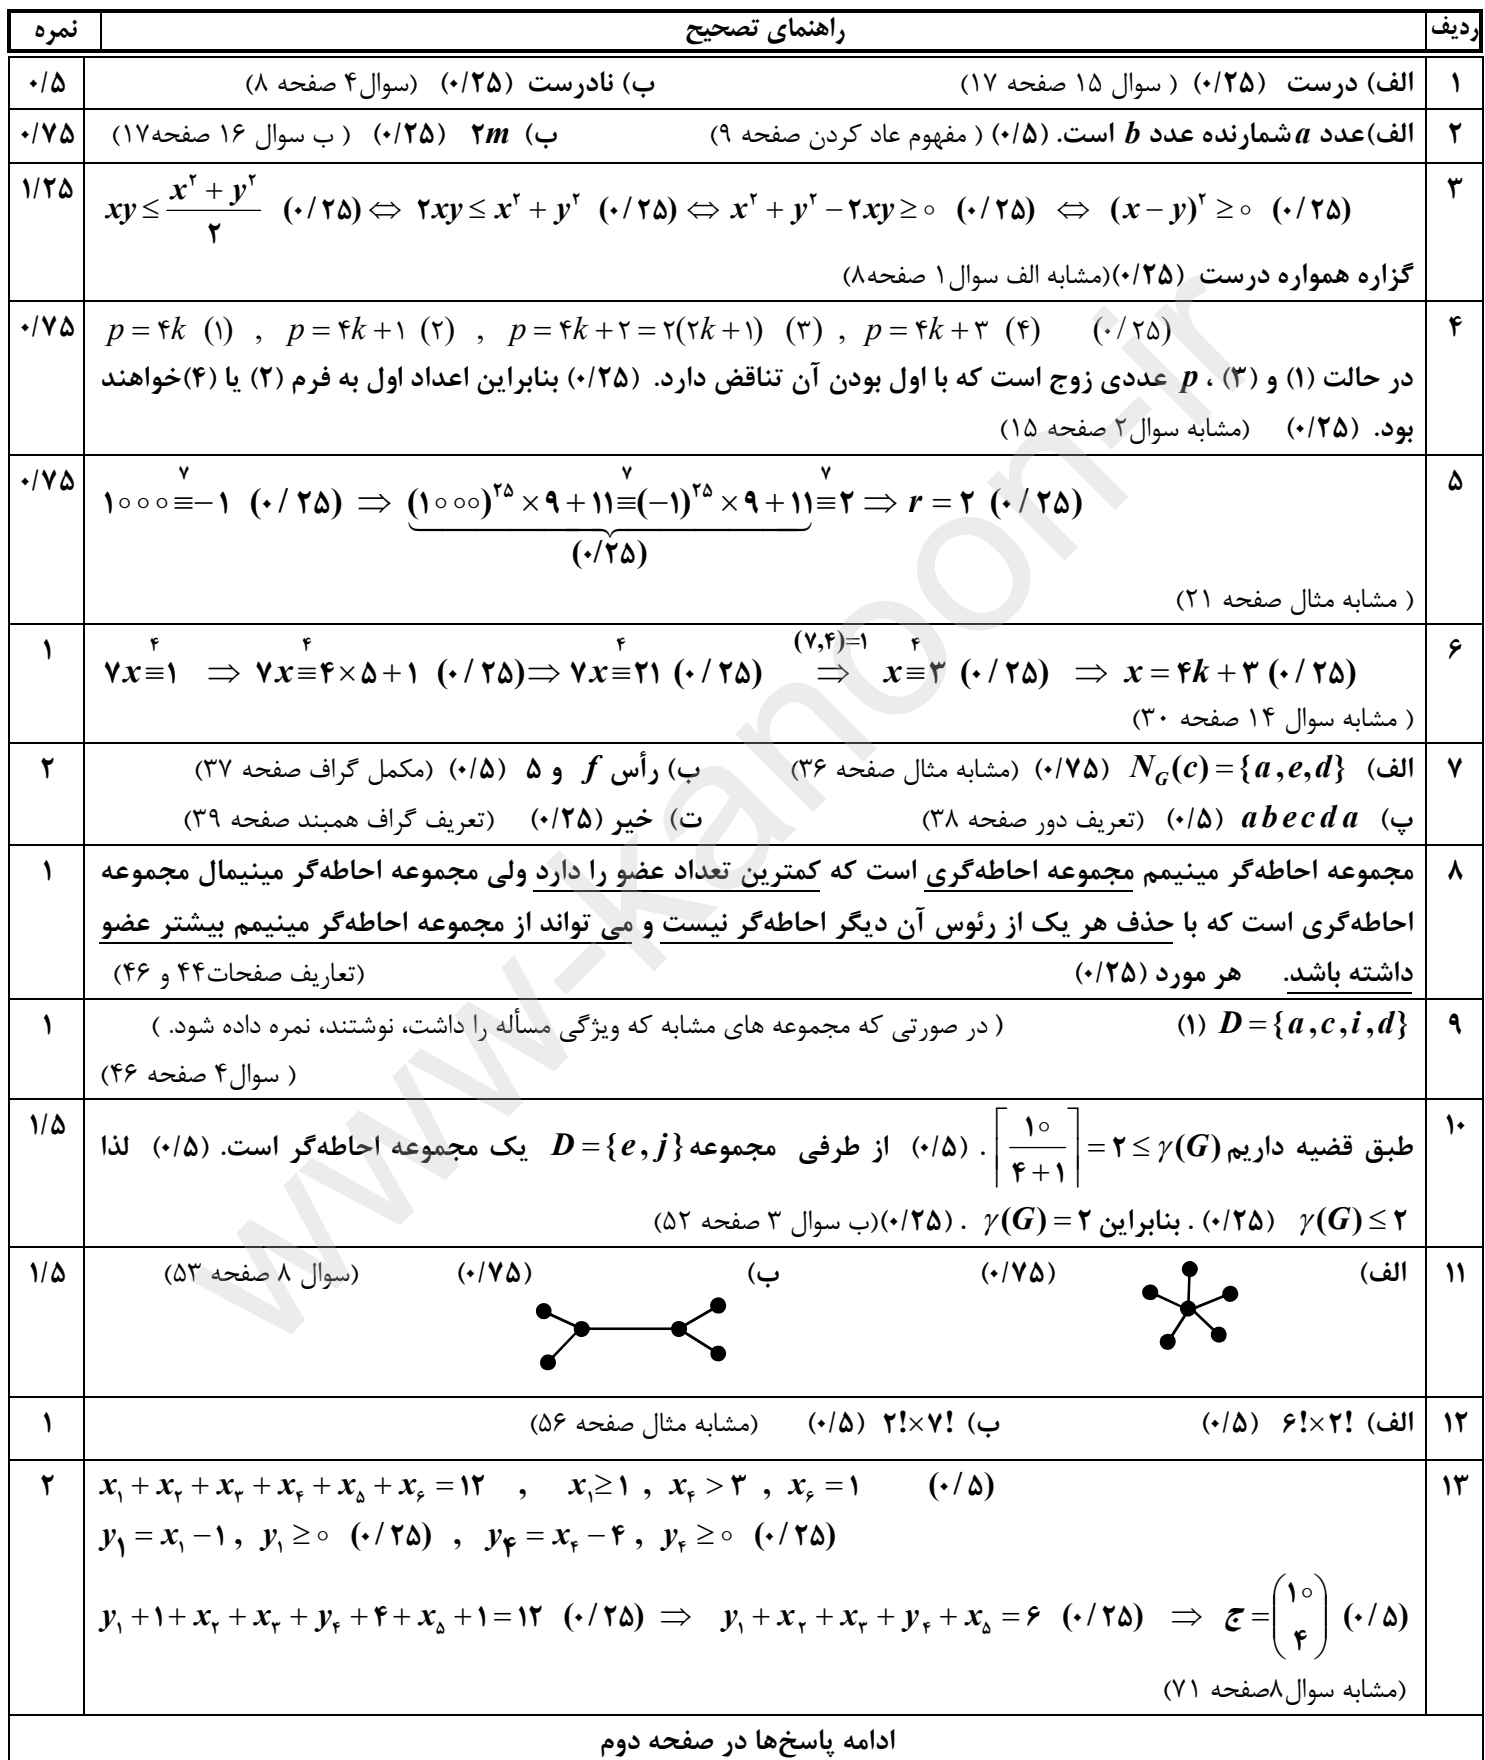 ردیف راهنمای تصحیح نمره
۱ الف) درست (۰/۲۵) ( سوال ۱۵ صفحه ۱۷) ب) نادرست (۰/۲۵) (سوال۴ صفحه ۸) ۰/۵
۲ الف)عدد a شمارنده عدد b است. (۰/۵) ( مفهوم عاد کردن صفحه ۹) ب) ۲m (۰/۲۵) ( ب سوال ۱۶ صفحه۱۷) ۰/۷۵
۳ xy ≤ (x^۲ + y^۲)/۲ (۰/۲۵) ⇔ ۲xy ≤ x^۲ + y^۲ (۰/۲۵) ⇔ x^۲ + y^۲ − ۲xy ≥ ۰ (۰/۲۵) ⇔ (x − y)^۲ ≥ ۰ (۰/۲۵) ۱/۲۵
گزاره همواره درست (۰/۲۵)(مشابه الف سوال۱ صفحه۸)
۴ p = ۴k (۱) , p = ۴k + ۱ (۲) , p = ۴k + ۲ = ۲(۲k + ۱) (۳) , p = ۴k + ۳ (۴) (۰/۲۵) ۰/۷۵
در حالت (۱) و (۳) ، p عددی زوج است که با اول بودن آن تناقض دارد. (۰/۲۵) بنابراین اعداد اول به فرم (۲) یا (۴)خواهند
بود. (۰/۲۵) (مشابه سوال۲ صفحه ۱۵)
۵ ۱۰۰۰ ≡^۷ −۱ (۰/۲۵) ⇒ (۱۰۰۰)^۲۵ × ۹ + ۱۱ ≡^۷ (−۱)^۲۵ × ۹ + ۱۱ ≡^۷ ۲ ⇒ r = ۲ (۰/۲۵) ۰/۷۵
(۰/۲۵)
( مشابه مثال صفحه ۲۱)
۶ ۷x ≡^۴ ۱ ⇒ ۷x ≡^۴ ۴×۵+۱ (۰/۲۵) ⇒ ۷x ≡^۴ ۲۱ (۰/۲۵) ⇒^{(۷,۴)=۱} x ≡^۴ ۳ (۰/۲۵) ⇒ x = ۴k + ۳ (۰/۲۵) ۱
( مشابه سوال ۱۴ صفحه ۳۰)
۷ الف) N_G(c) = {a,e,d} (۰/۷۵) (مشابه مثال صفحه ۳۶) ب) رأس f و ۵ (۰/۵) (مکمل گراف صفحه ۳۷) ۲
پ) abecda (۰/۵) (تعریف دور صفحه ۳۸) ت) خیر (۰/۲۵) (تعریف گراف همبند صفحه ۳۹)
۸ مجموعه احاطه‌گر مینیمم مجموعه احاطه‌گری است که کمترین تعداد عضو را دارد ولی مجموعه احاطه‌گر مینیمال مجموعه ۱
احاطه‌گری است که با حذف هر یک از رئوس آن دیگر احاطه‌گر نیست و می تواند از مجموعه احاطه‌گر مینیمم بیشتر عضو
داشته باشد. هر مورد (۰/۲۵) (تعاریف صفحات۴۴ و ۴۶)
۹ D = {a,c,i,d} (۱) ( در صورتی که مجموعه های مشابه که ویژگی مسأله را داشت، نوشتند، نمره داده شود. ) ۱
( سوال۴ صفحه ۴۶)
۱۰ طبق قضیه داریم ⌈۱۰/(۴+۱)⌉ = ۲ ≤ γ(G) . (۰/۵) از طرفی مجموعه D = {e,j} یک مجموعه احاطه‌گر است. (۰/۵) لذا ۱/۵
γ(G) ≤ ۲ (۰/۲۵) . بنابراین γ(G) = ۲ . (۰/۲۵)(ب سوال ۳ صفحه ۵۲)
۱۱ الف) (۰/۷۵) ب) (۰/۷۵) (سوال ۸ صفحه ۵۳) ۱/۵
۱۲ الف) ۶!×۲! (۰/۵) ب) ۲!×۷! (۰/۵) (مشابه مثال صفحه ۵۶) ۱
۱۳ x_۱ + x_۲ + x_۳ + x_۴ + x_۵ + x_۶ = ۱۲ , x_۱ ≥ ۱ , x_۴ > ۳ , x_۶ = ۱ (۰/۵) ۲
y_۱ = x_۱ − ۱ , y_۱ ≥ ۰ (۰/۲۵) , y_۴ = x_۴ − ۴ , y_۴ ≥ ۰ (۰/۲۵)
y_۱ + ۱ + x_۲ + x_۳ + y_۴ + ۴ + x_۵ + ۱ = ۱۲ (۰/۲۵) ⇒ y_۱ + x_۲ + x_۳ + y_۴ + x_۵ = ۶ (۰/۲۵) ⇒ ج = (۱۰ ۴) (۰/۵)
(مشابه سوال۸صفحه ۷۱)
ادامه پاسخ‌ها در صفحه دوم
www-kanoon-ir